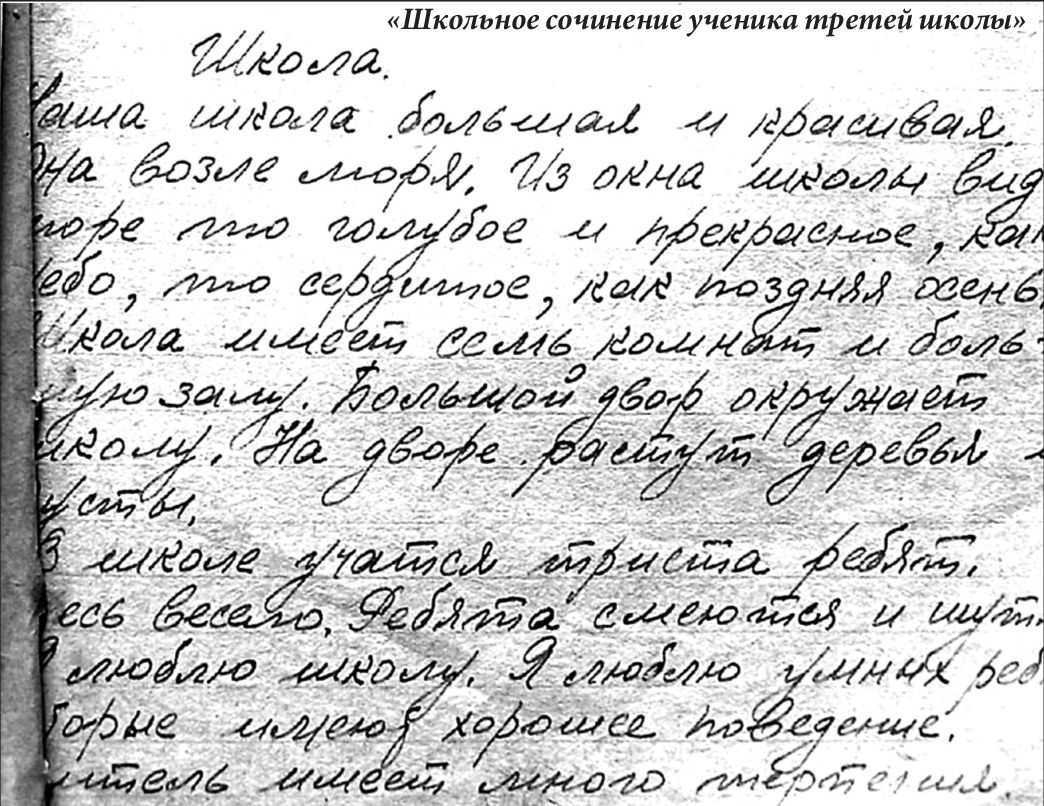 «Школьное сочинение ученика третей школы»
Школа.
Наша школа большая и красивая.
Она возле моря. Из окна школы вид
море то голубое и прекрасное, как
небо, то сердитое, как поздняя осень,
Школа имеет семь комнат и боль-
шую залу. Большой двор окружает
школу. На дворе растут деревья и
кусты.
В школе учатся триста ребят.
есь весело. Ребята смеются и шут
Я люблю школу. Я люблю умных реб
торые имеют хорошее поведение.
итель имеет много терпения.